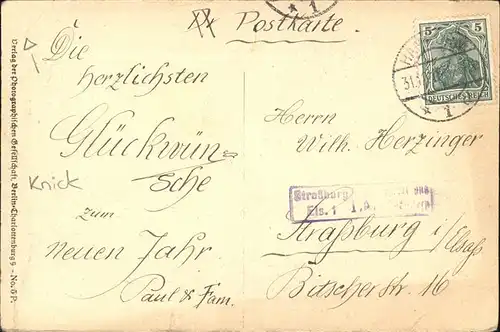 Postkarte.
Die
herzlichsten
Glückwün-
sche
zum
neuen Jahr
Paul & Fam.
Herrn
Wilh. Herzinger
Straßburg i/Elsaß
Bitscherstr. 16
Knick
5 5
DEUTSCHES REICH
31.
* 1
Straßburg
Els. 1
Verlag der Photographischen Gesellschaft, Berlin-Charlottenburg 9 – No. 5 P.